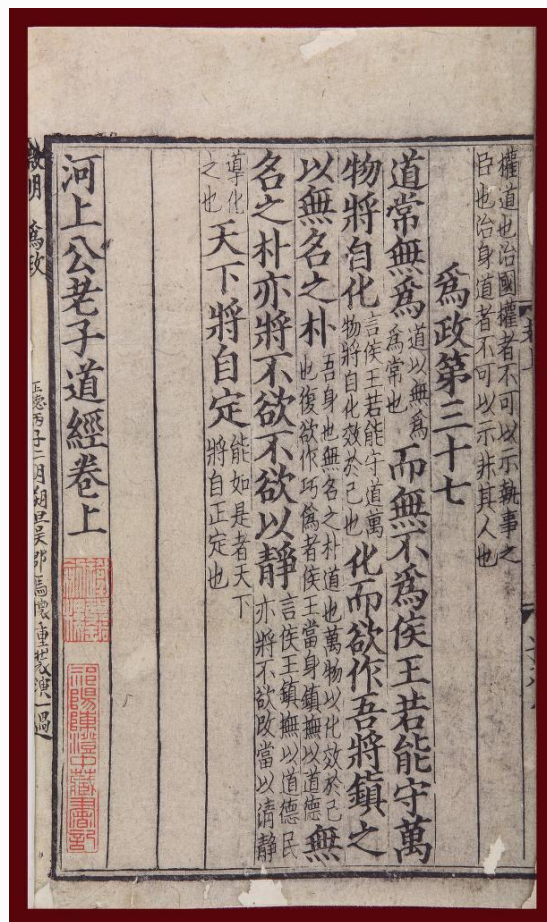 權道也治國權者不可以示執事之
臣也治身道者不可以示非其人也
爲政第三十七
道常無爲道以無爲爲常也而無不爲侯王若能守萬
物將自化言侯王若能守道萬物將自化效於己也化而欲作吾將鎮之
以無名之朴吾身也無名之朴道也萬物以化效於己也復欲作巧僞者侯王當身鎮撫以道德無
名之朴亦將不欲不欲以靜言侯王鎮撫以道德民亦將不欲改當以清靜
導化之也天下將自定能如是者天下將自正定也
河上公老子道經卷上
祁陽陳澄中藏書記
明 爲政
正德丙子二月朔旦吳郡馬懷重裝演一過